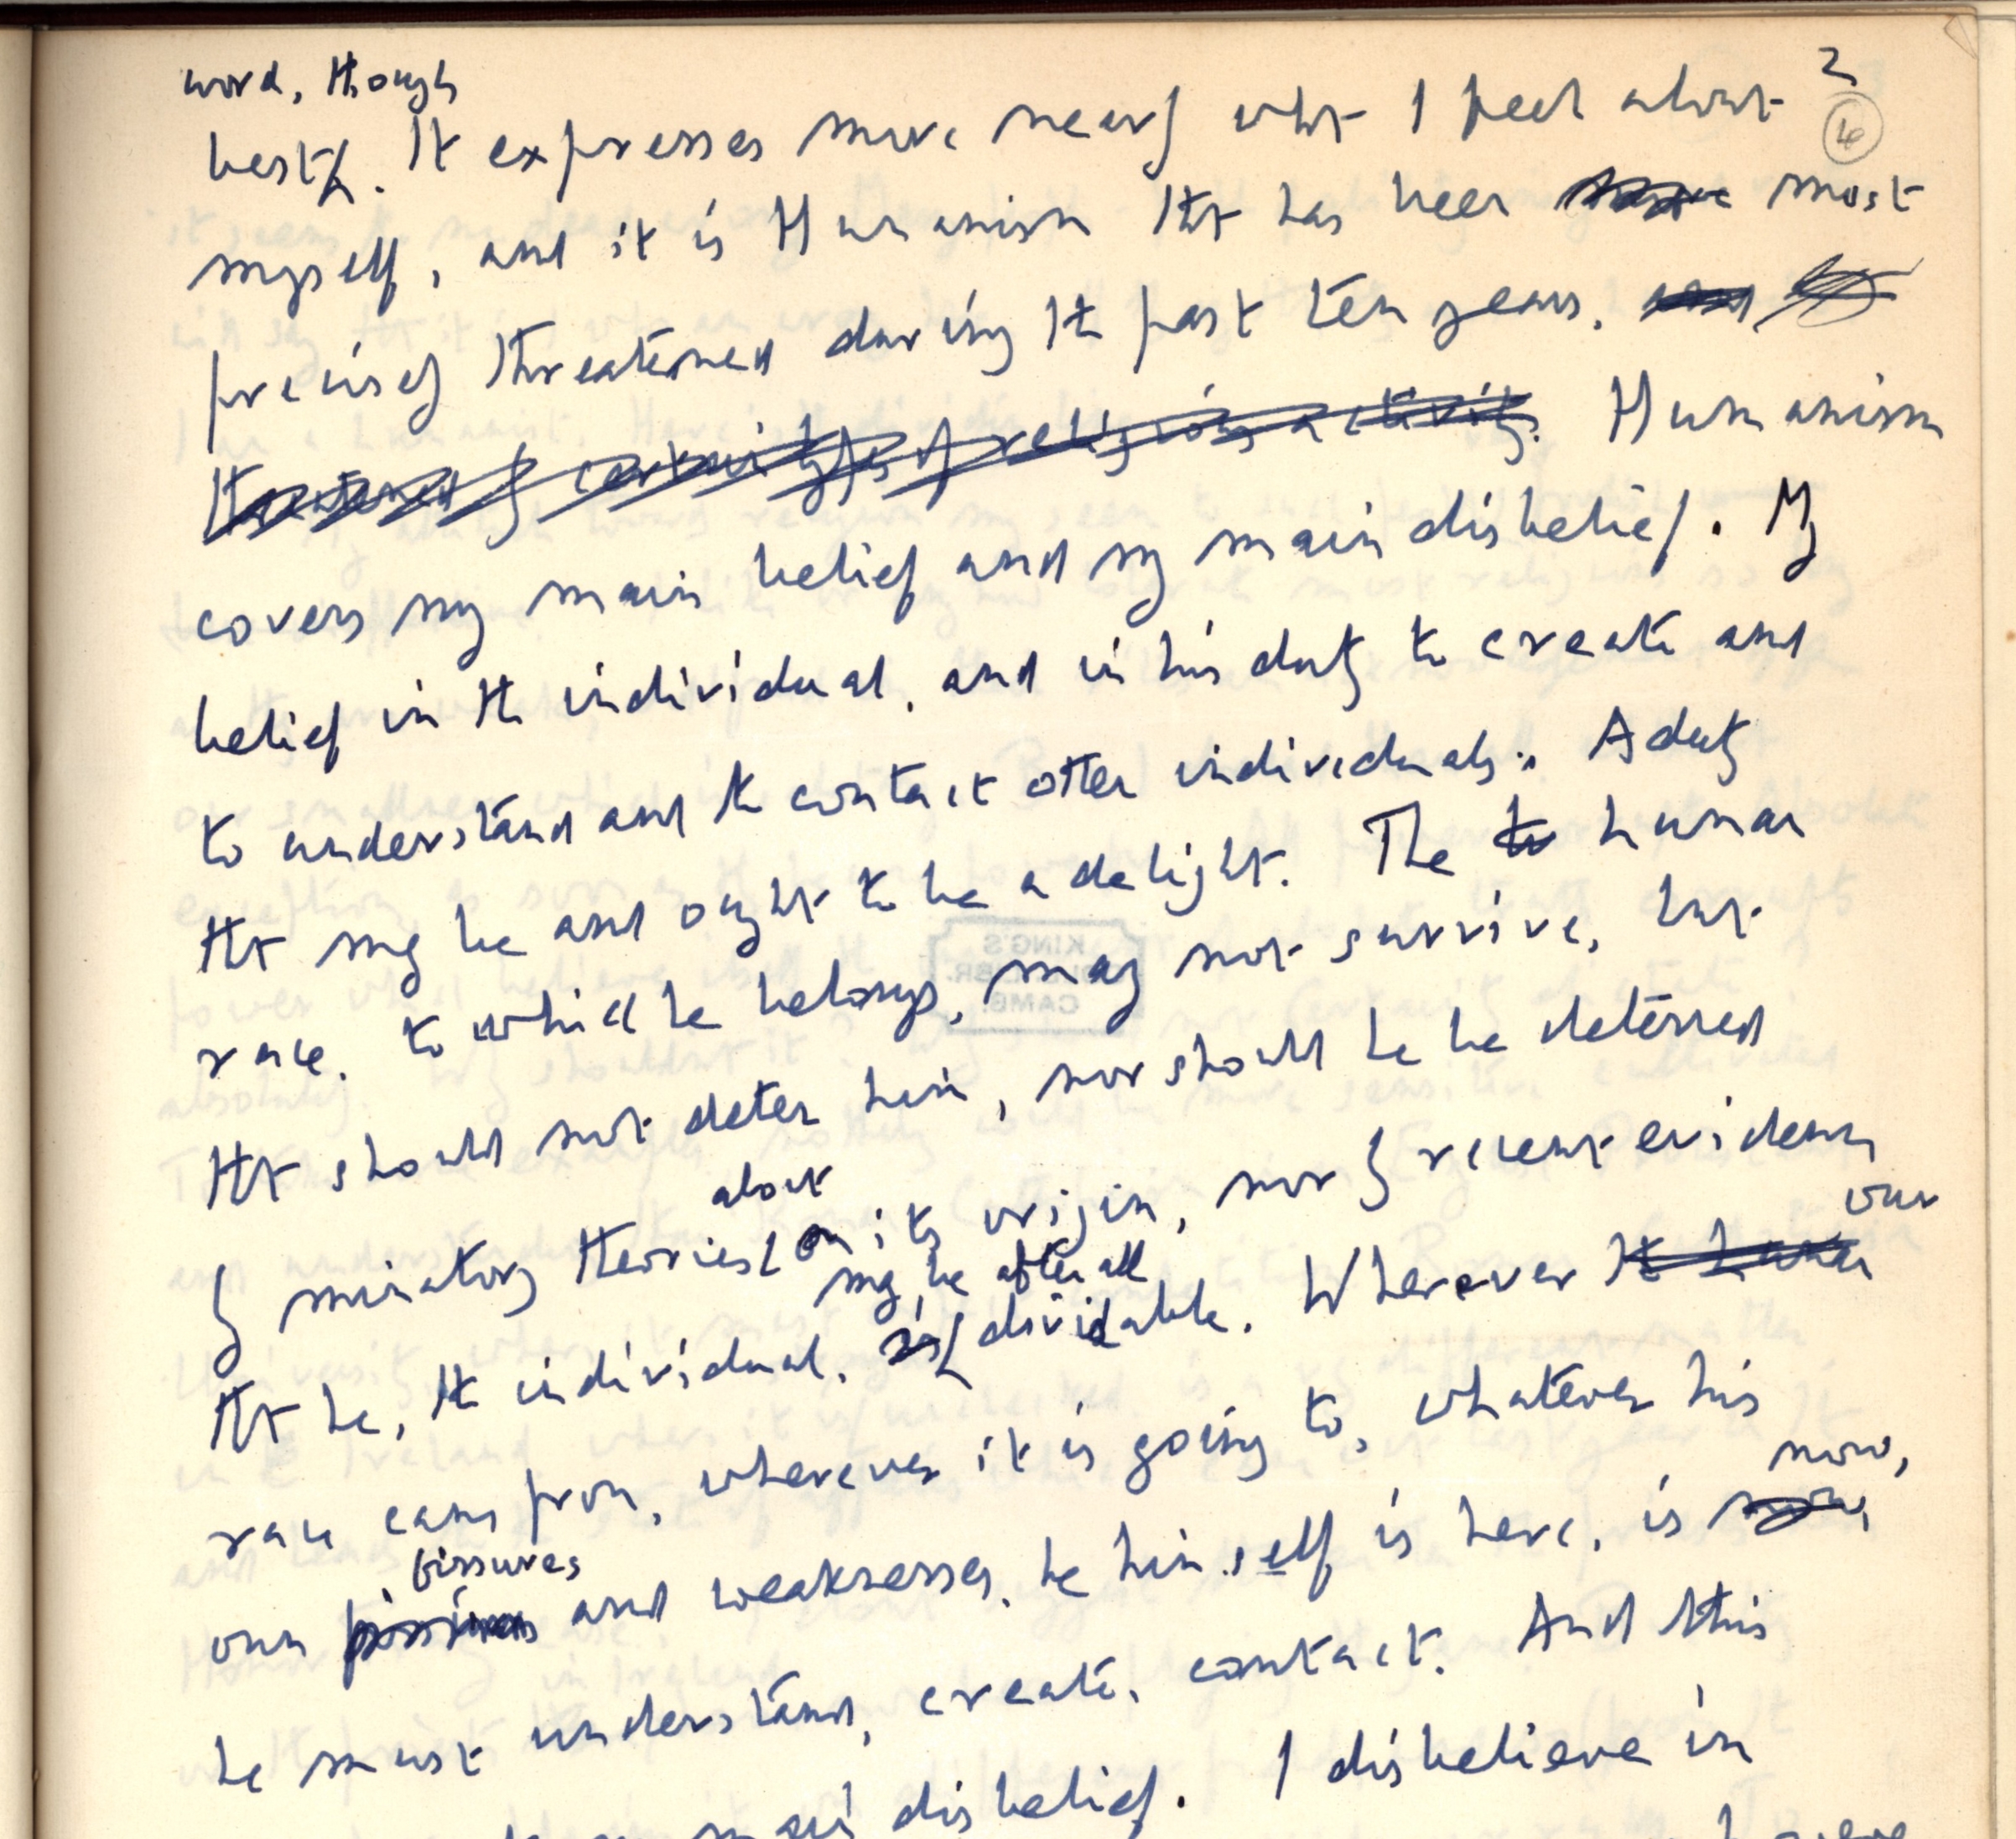 word, though
2
4
best. It expresses more nearly what I feel about
myself, and it is Humanism that has been most
precisely threatened during the past ten years, and
threatened by certain types of religious activity. Humanism
covers my main belief and my main disbelief. My
belief in the individual, and in his duty to create and
to understand and to contact other individuals. A duty
that may be and ought to be a delight. The human
race, to which he belongs, may not survive, but
that should not deter him, nor should he be deterred
about
by minatory theories on its origin, nor by recent evidence
may be after all
our
that he, the individual, is dividable. Wherever the human
race came from, wherever it is going to, whatever his
now,
fissures
own fissures and weaknesses, he himself is here, is now,
he must understand, create, contact. And this
main disbelief. I disbelieve in
KING'S
CAMB.